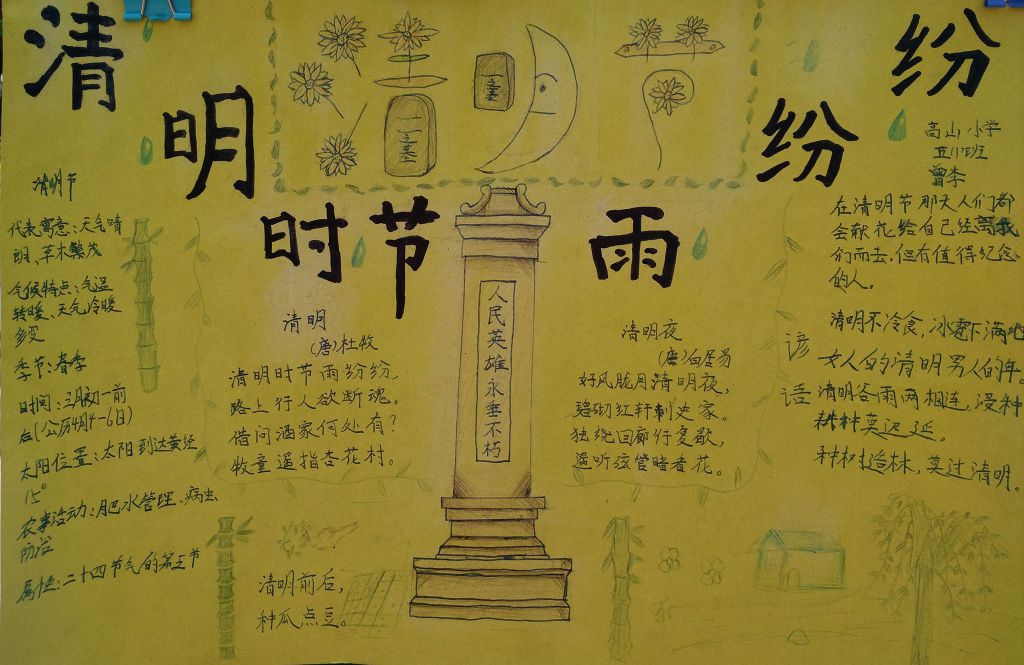 清明时节雨纷纷
高山小学
五(1)班
曾李
清明节
代表寓意:天气晴
朗、草木繁茂
气候特点:气温
转暖、天气冷暖
多变
季节:春季
时间:三月初一前
后(公历4月4-6日)
太阳位置:太阳到达黄经
15°
农事活动:肥水管理、病虫
防治
属性:二十四节气的第五节
清明
(唐)杜牧
清明时节雨纷纷,
路上行人欲断魂。
借问酒家何处有?
牧童遥指杏花村。
清明前后,
种瓜点豆。
人民英雄永垂不朽
清明夜
(唐)白居易
好风胧月清明夜,
碧砌红轩刺史家。
独绕回廊行复歇,
遥听弦管暗看花。
在清明节那天人们都
会献花给自己经离我
们而去,但有值得纪念
的人。
谚语
清明不冷食,冰雹下满地
女人的清明男人的年。
清明谷雨两相连,浸种
耕种莫迟延。
种树造林,莫过清明。